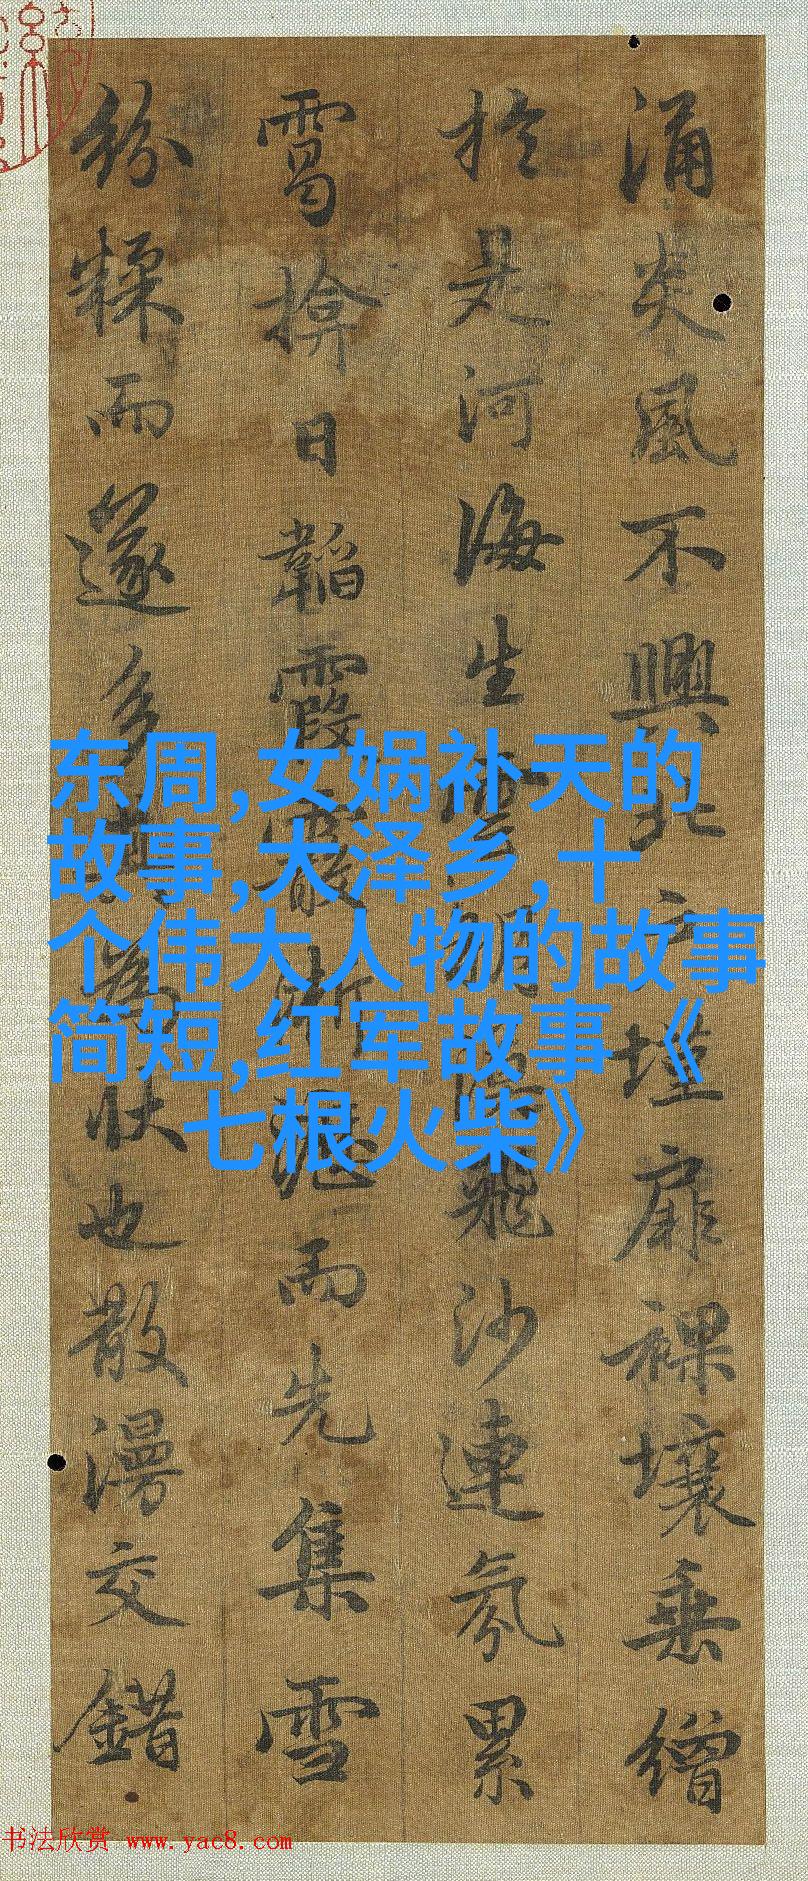 涌炎風不興北户墐扉裸壤垂繒
於是河海生雲朔飛沙連氛累
靄揜日韜霞霰淅瀝而先集雪
紛糅而遂多其為狀也散漫交錯
东周,女娲补天的
故事,大泽乡,十
个伟大人物的故事
简短,红军故事《
七根火柴》
书法欣赏 www.yac8.com